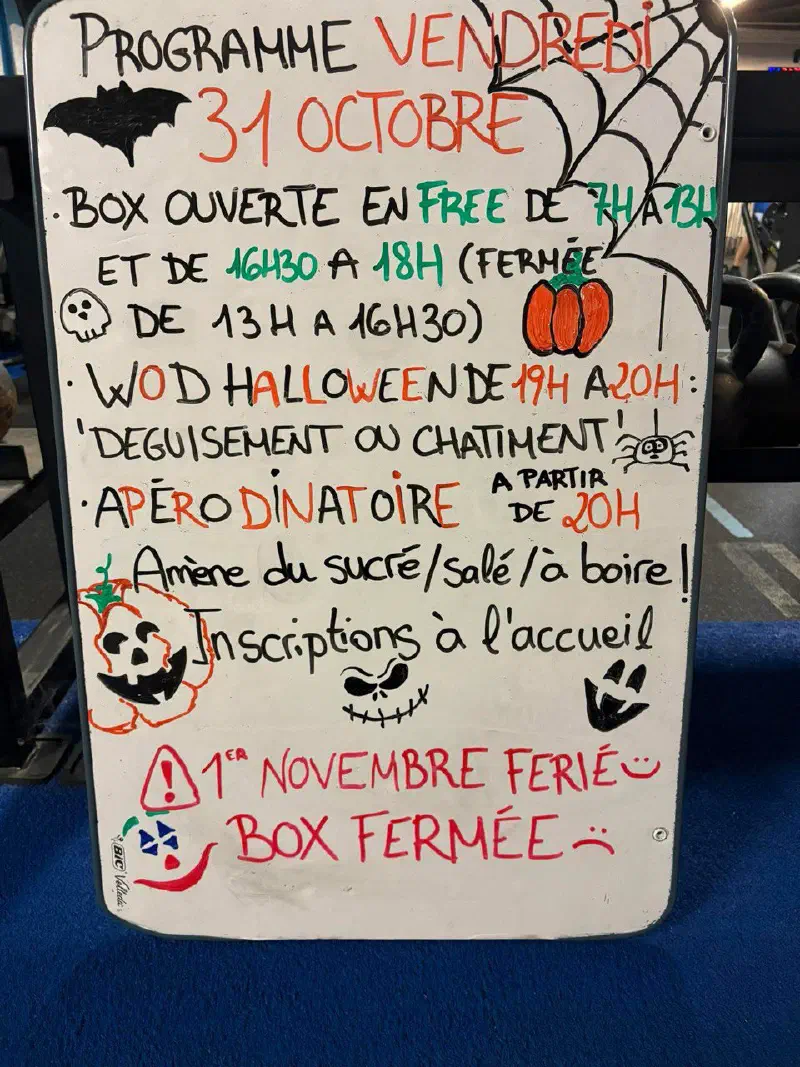 PROGRAMME VENDREDI
31 OCTOBRE
. BOX OUVERTE EN FREE DE 7H A 13H
ET DE 16H30 A 18H (FERMÉE
DE 13H A 16H30)
. WOD HALLOWEEN DE 19H A 20H :
'DEGUISEMENT OU CHATIMENT'
. APÉRO DINATOIRE A PARTIR
DE 20H
Amène du sucré/salé/à boire !
Inscriptions à l'accueil
! 1ER NOVEMBRE FERIÉ
BOX FERMÉE
BIC Velleda